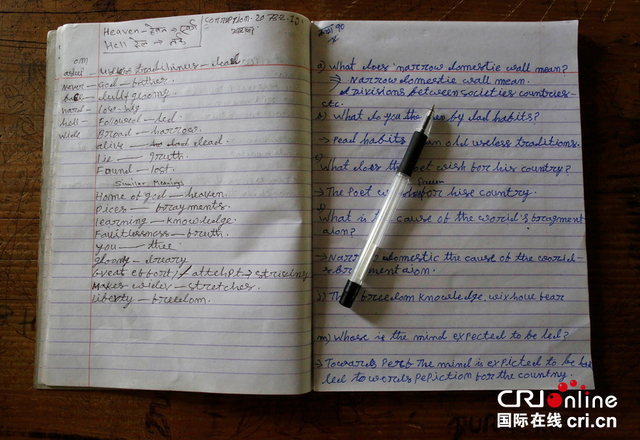 Heaven - हेवन → स्वर्ग
Hell हेल → नर्क
CORRUPTION
om
traditions - dead
God - father
dull - gloomy
hard - low
hell - Followed - led
wide Broad - narrow
alive - dead
Lie - truth
Found - lost
Similar Meanings
Home of god - heaven.
Pices - fragments.
learning - knowledge.
Faultlessness - truth.
you - thee
gloomy - dreary
Great effort / attempt → striving
Makes wider - stretches.
liberty - freedom.
a) What does narrow domestic wall mean?
→ Narrow domestic wall mean
divisions between societies countries-
etc.
b) What do you the by dad habits?
→ Dead habits old useless traditions.
What does the poet wish for his country?
→ The Poet for hise country.
What is the cause of the world's fragment
ation?
→ domestic the cause of the world-
s fragmentaion.
freedom knowledge, without fear
m) Whose is the mind expected to be led?
→ Towards the mind is expicted to be
led towords for the country
CRI online
国际在线 cri.cn